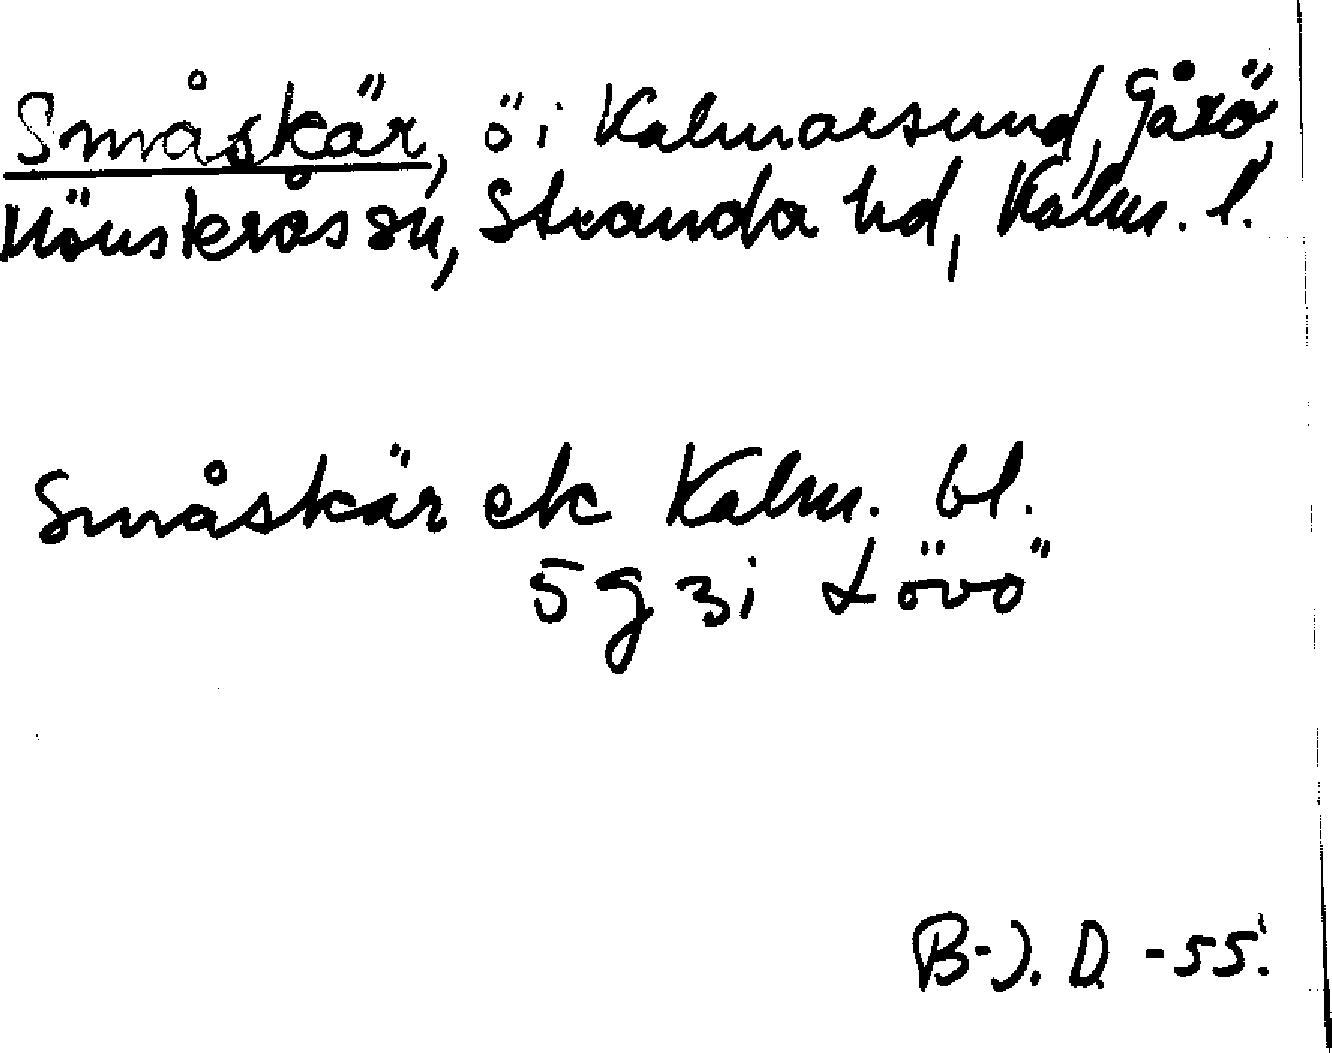 Småskär, ö i Kalmarsund, Gårö,
Mönsterås sn, Stranda hd, Kalm. l.
Småskär ek Kalm. bl.
5 g 3 i Lövö
B-J. D. -55.